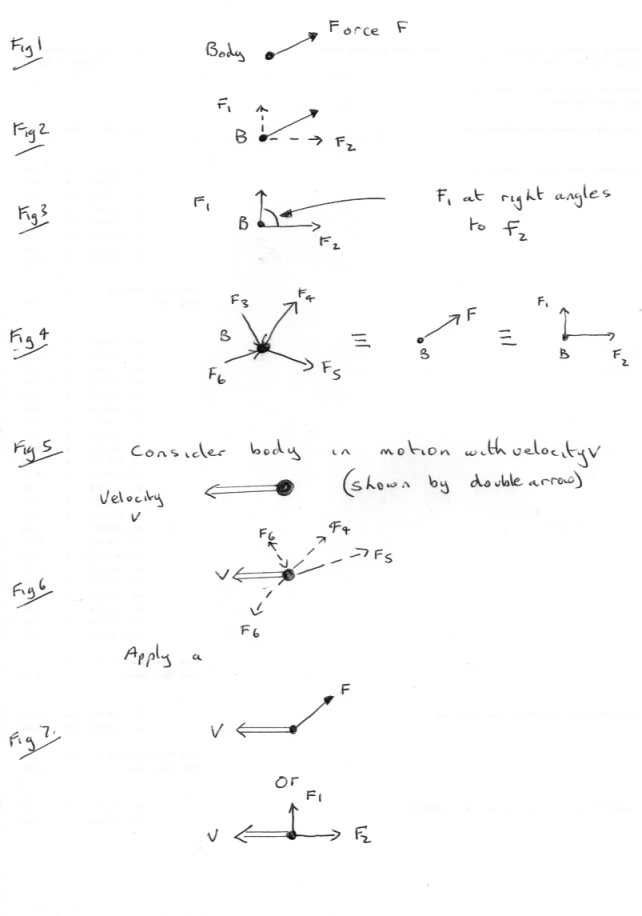 Fig 1
Body
Force F
Fig 2
F₁
B
F₂
Fig 3
F₁
B
F₂
F₁ at right angles
to F₂
Fig 4
F₃ F₄
B
F₆ F₅
≡
F
B
≡
F₁
B
F₂
Fig 5
Consider body in motion with velocity V
(shown by double arrow)
Velocity
V
Fig 6
F₆ F₄
V
F₅
F₆
Apply a
Fig 7.
F
V
or
F₁
V
F₂